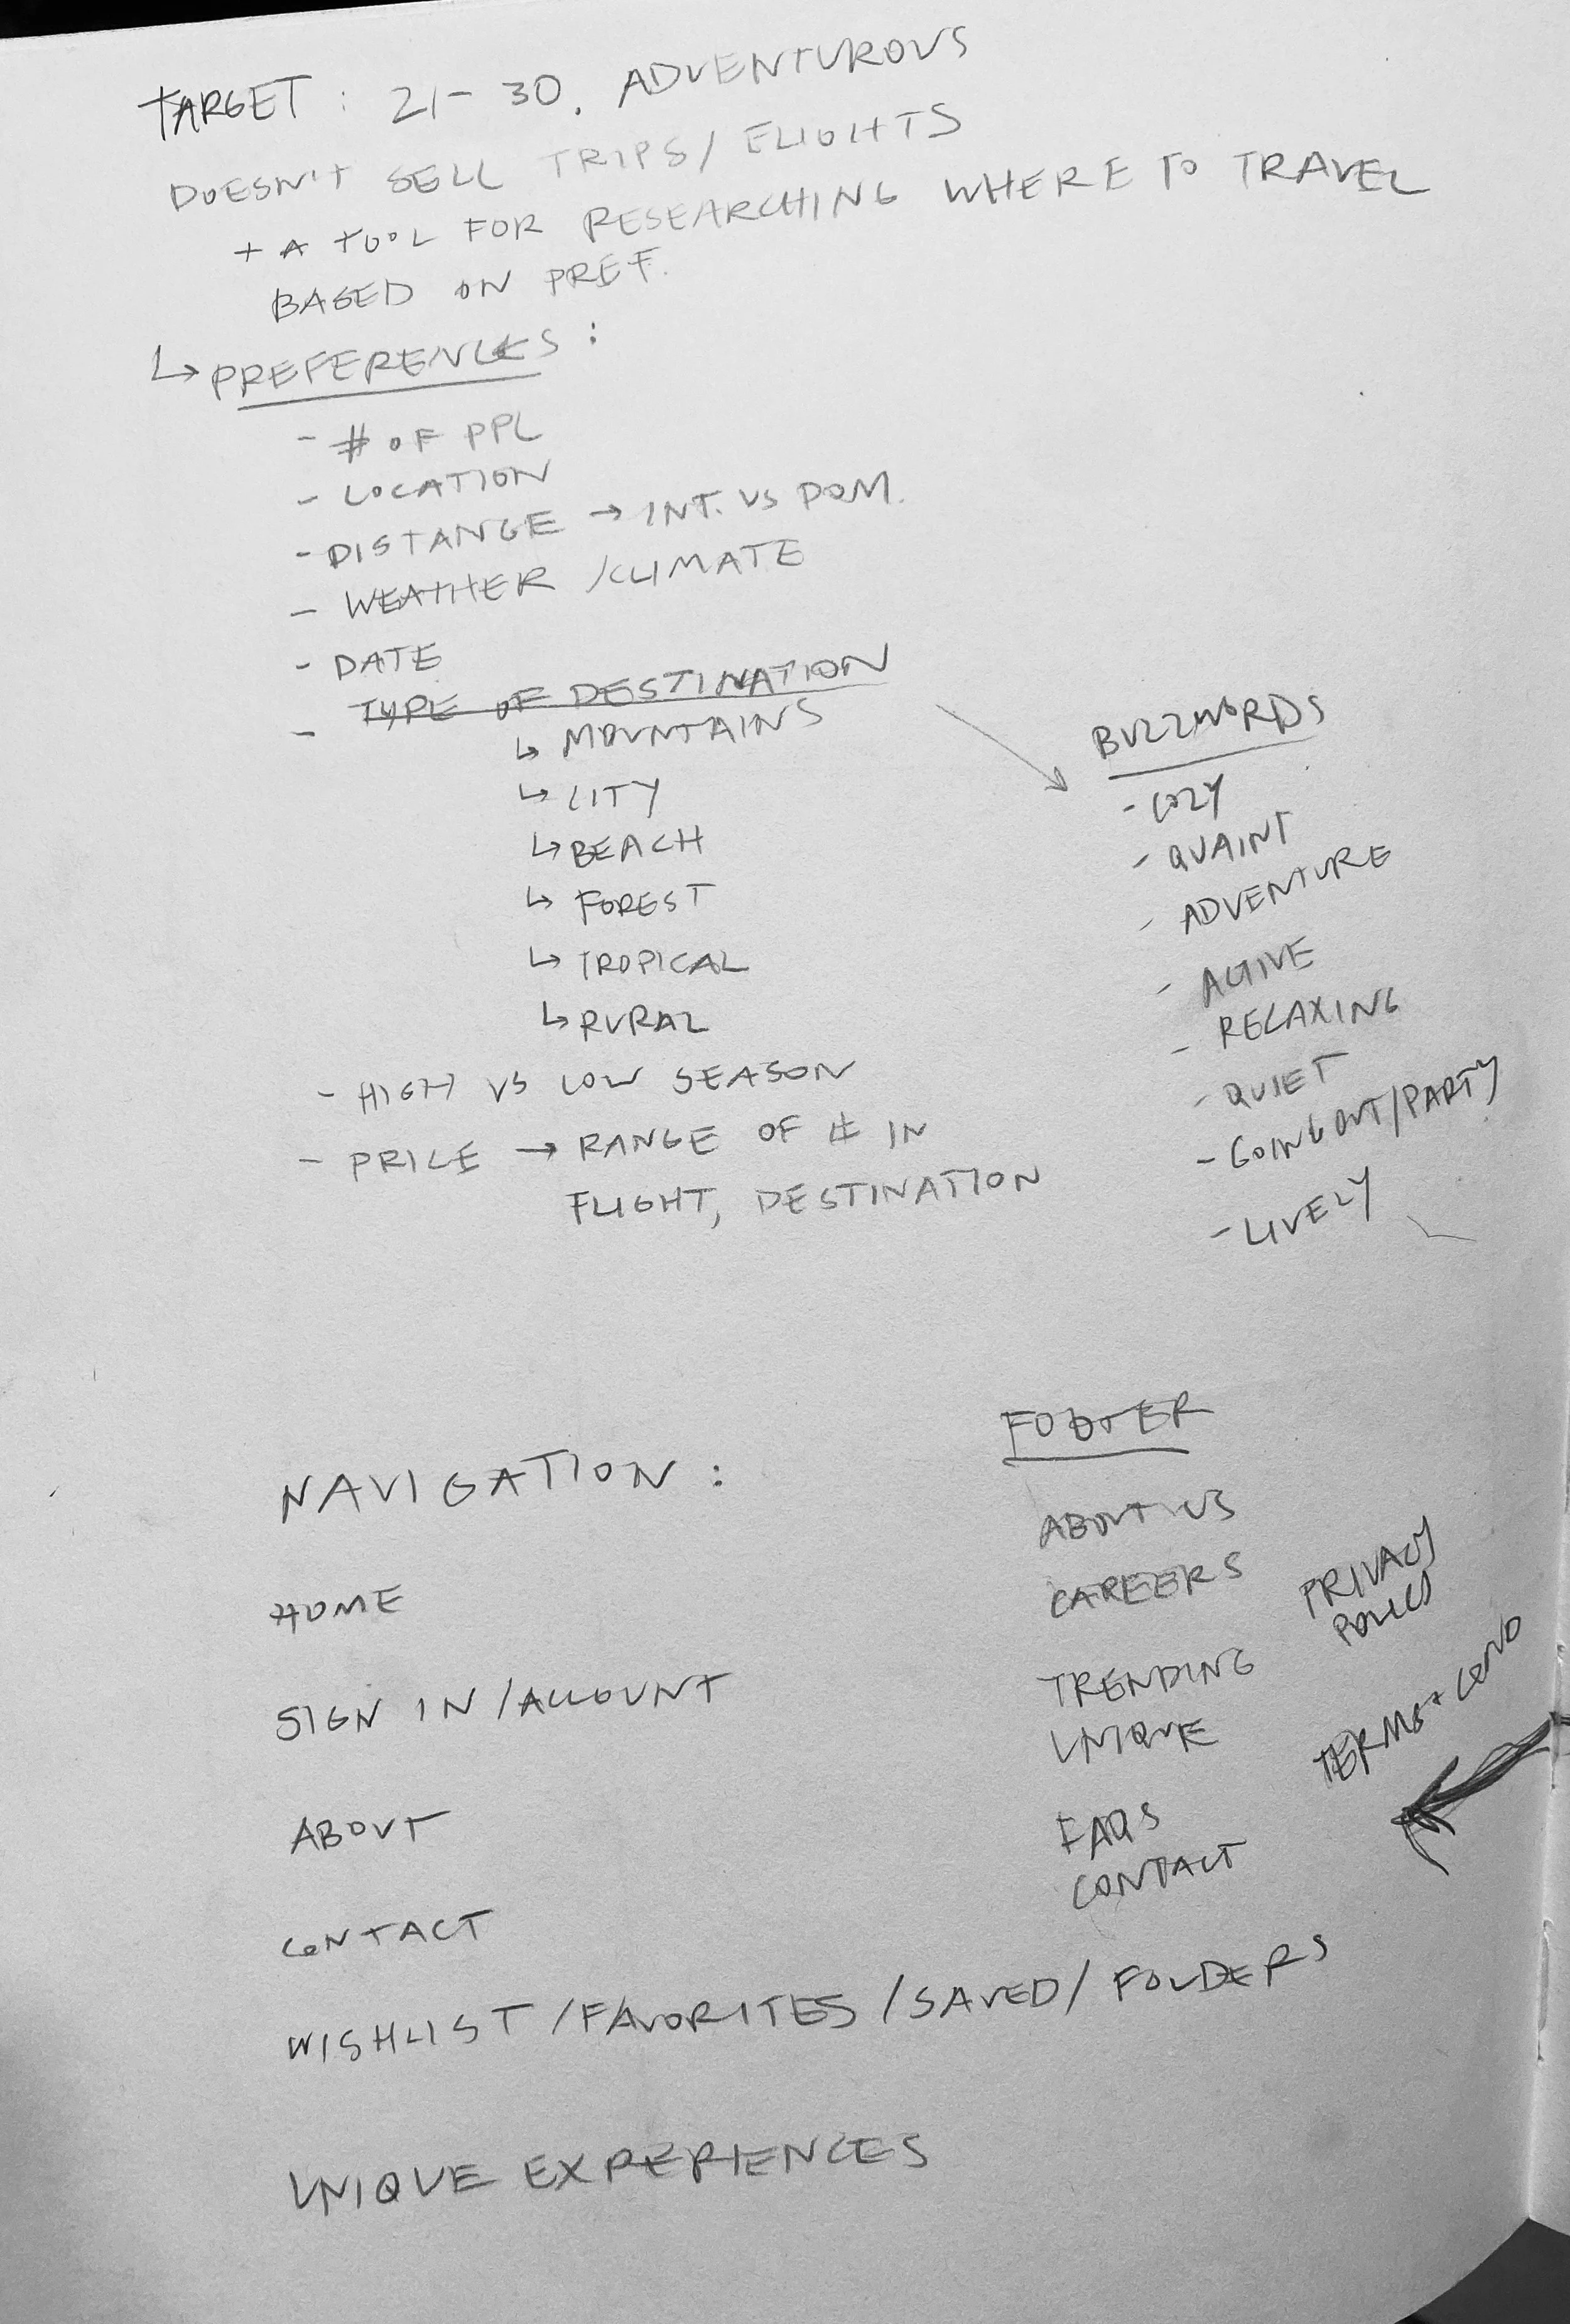 TARGET: 21-30. ADVENTUROUS
DOESN'T SELL TRIPS/FLIGHTS
+ A TOOL FOR RESEARCHING WHERE TO TRAVEL
BASED ON PREF.
↳ PREFERENCES:
- # OF PPL
- LOCATION
- DISTANCE → INT. VS DOM.
- WEATHER/CLIMATE
- DATE
- TYPE OF DESTINATION
↳ MOUNTAINS
↳ CITY
↳ BEACH
↳ FOREST
↳ TROPICAL
↳ RURAL
- HIGH VS LOW SEASON
- PRICE → RANGE OF # IN
FLIGHT, DESTINATION
BUZZWORDS
- COZY
- QUAINT
- ADVENTURE
- ACTIVE
- RELAXING
- QUIET
- GOING OUT/PARTY
- LIVELY
NAVIGATION:
HOME
SIGN IN/ACCOUNT
ABOUT
CONTACT
WISHLIST/FAVORITES/SAVED/FOLDERS
UNIQUE EXPERIENCES
FOOTER
ABOUT US
CAREERS
TRENDING
UNIQUE
FAQS
CONTACT
PRIVACY
POLICY
TERMS + COND